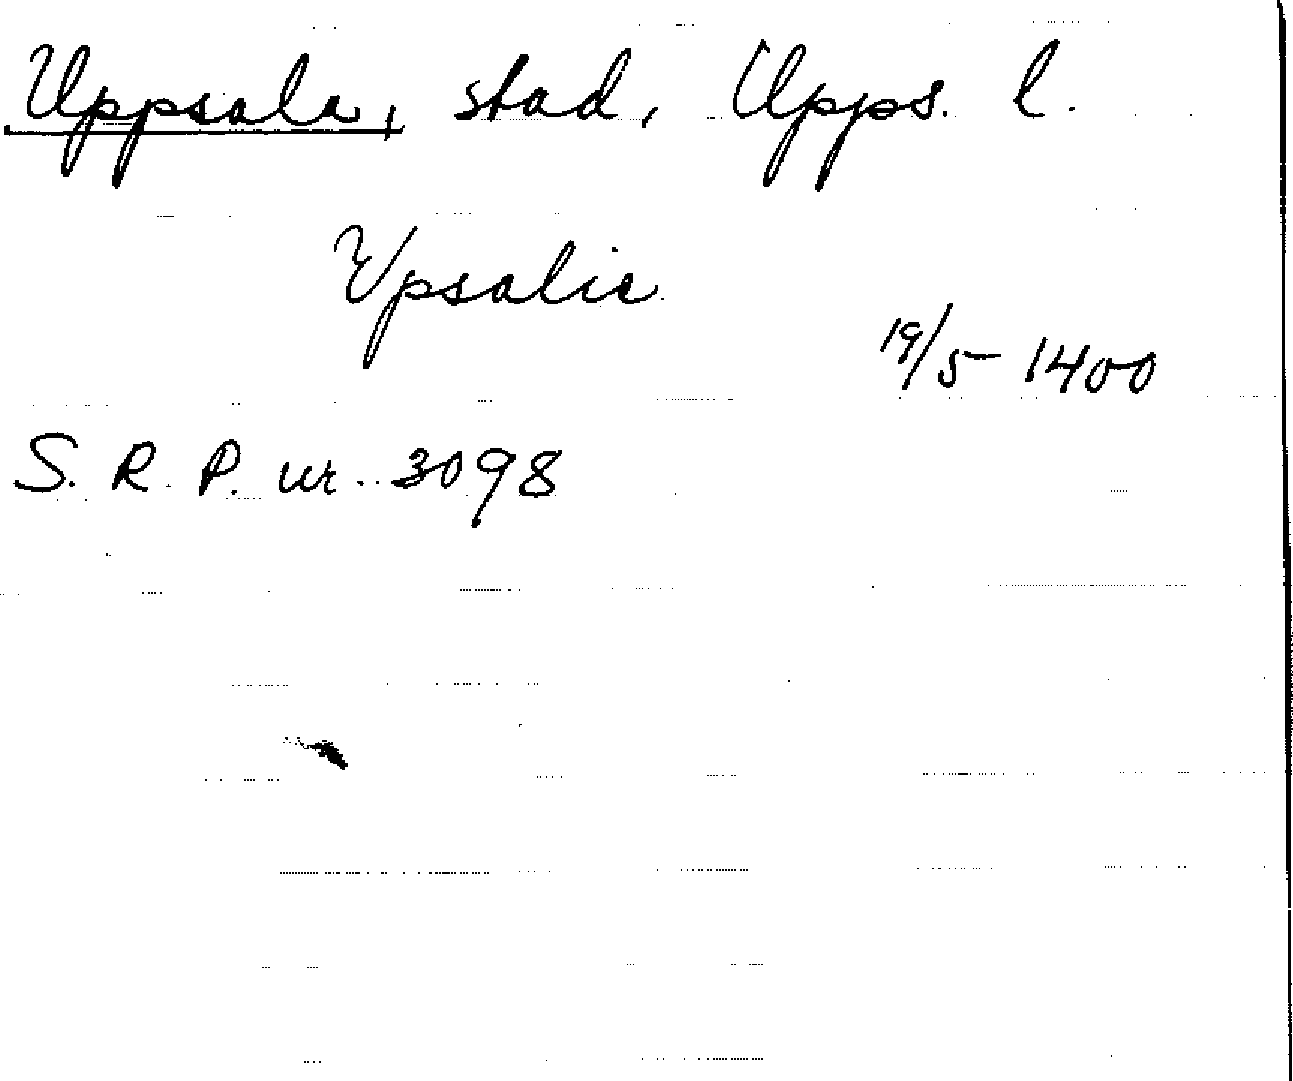 Uppsala, stad, Upps. l.
Vpsalie
19/5 1400
S. R. P. nr. 3098